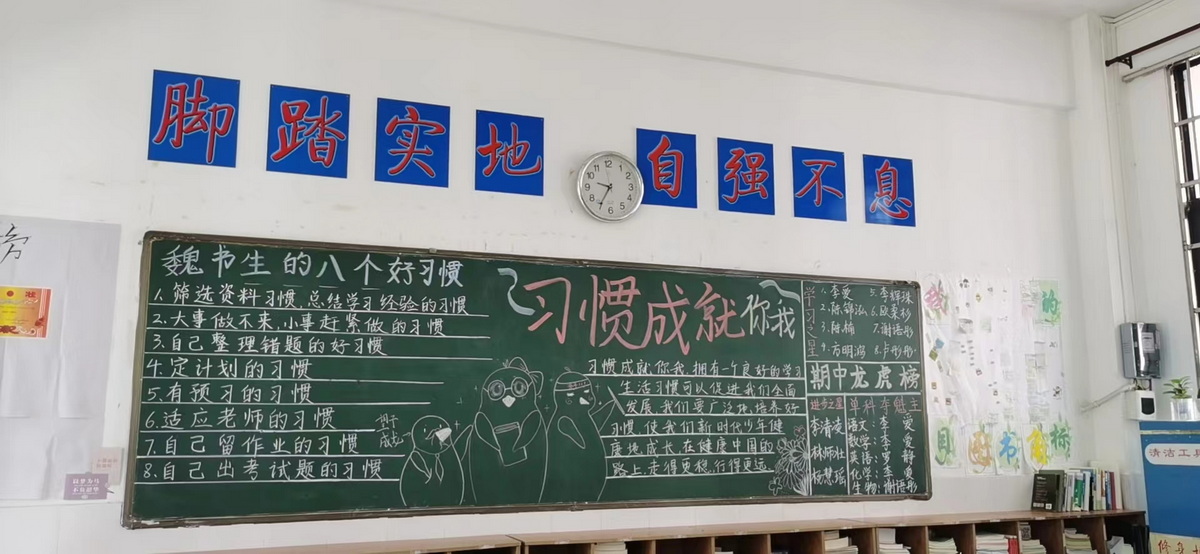 脚踏实地
自强不息
12
1
2
3
4
5
6
7
8
9
10
11
魏书生的八个好习惯
1.筛选资料习惯、总结学习经验的习惯
2.大事做不来,小事赶紧做的习惯
3.自己整理错题的好习惯
4.定计划的习惯
5.有预习的习惯
6.适应老师的习惯
7.自己留作业的习惯
8.自己出考试题的习惯
习惯成就你我
习惯成就你我,拥有一个良好的学习
生活习惯可以促进我们全面
发展,我们要广泛地培养好
习惯,使我们新时代少年健
康地成长,在健康中国的
路上走得更稳,行得更远
学习之星
1.李爱
5.李辉珠
2.陈锦泓
6.欧柔杉
3.陆楠
7.谢语彤
9.方明鸿
8.卢彤彤
期中龙虎榜
进步之星
李清凌
林师壮
杨慧瑶
单科夺魁主
语文:李爱
数学:李爱
英语:罗静
化学:李爱
生物:谢语彤
清洁工具